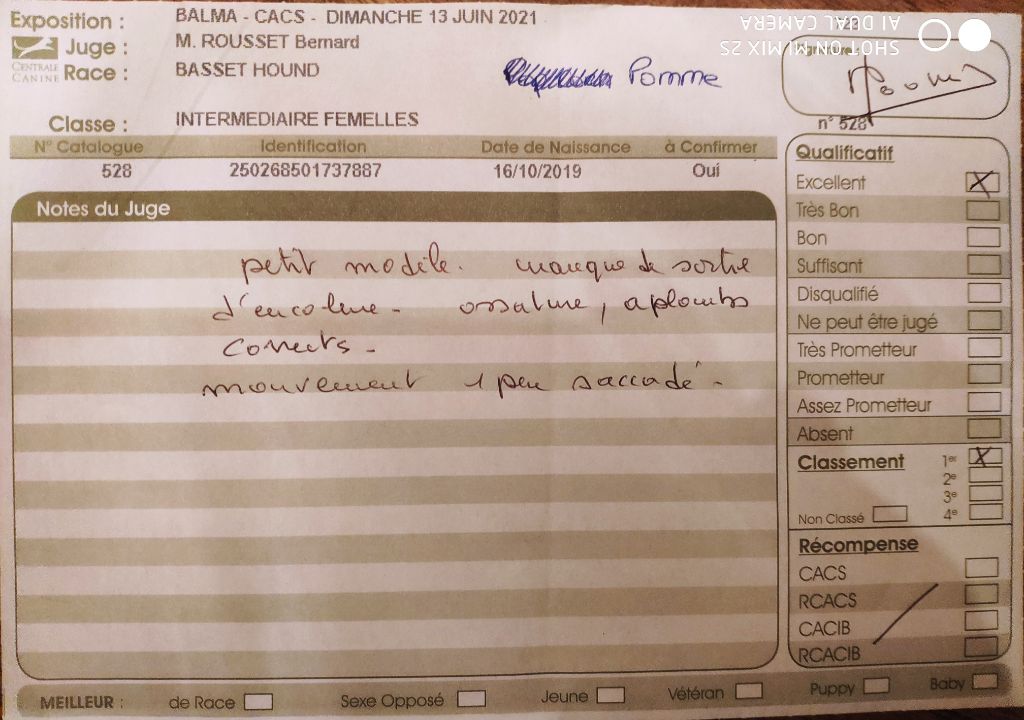 Exposition : BALMA - CACS - DIMANCHE 13 JUIN 2021
Juge : M. ROUSSET Bernard
CENTRALE CANINE
Race : BASSET HOUND
Pomme
SHOT ON MI MIX 2S
AI DUAL CAMERA
n° 528
Classe : INTERMEDIAIRE FEMELLES
N° Catalogue Identification Date de Naissance à Confirmer
528 250268501737887 16/10/2019 Oui
Notes du Juge
petit modèle. manque de sortie
d'encolure - ossature, aplombs
corrects -
mouvement 1 peu saccadé -
Qualificatif
Excellent X
Très Bon
Bon
Suffisant
Disqualifié
Ne peut être jugé
Très Prometteur
Prometteur
Assez Prometteur
Absent
Classement 1er X
2e
3e
Non Classé 4e
Récompense
CACS
RCACS
CACIB
RCACIB
MEILLEUR : de Race Sexe Opposé Jeune Vétéran Puppy Baby